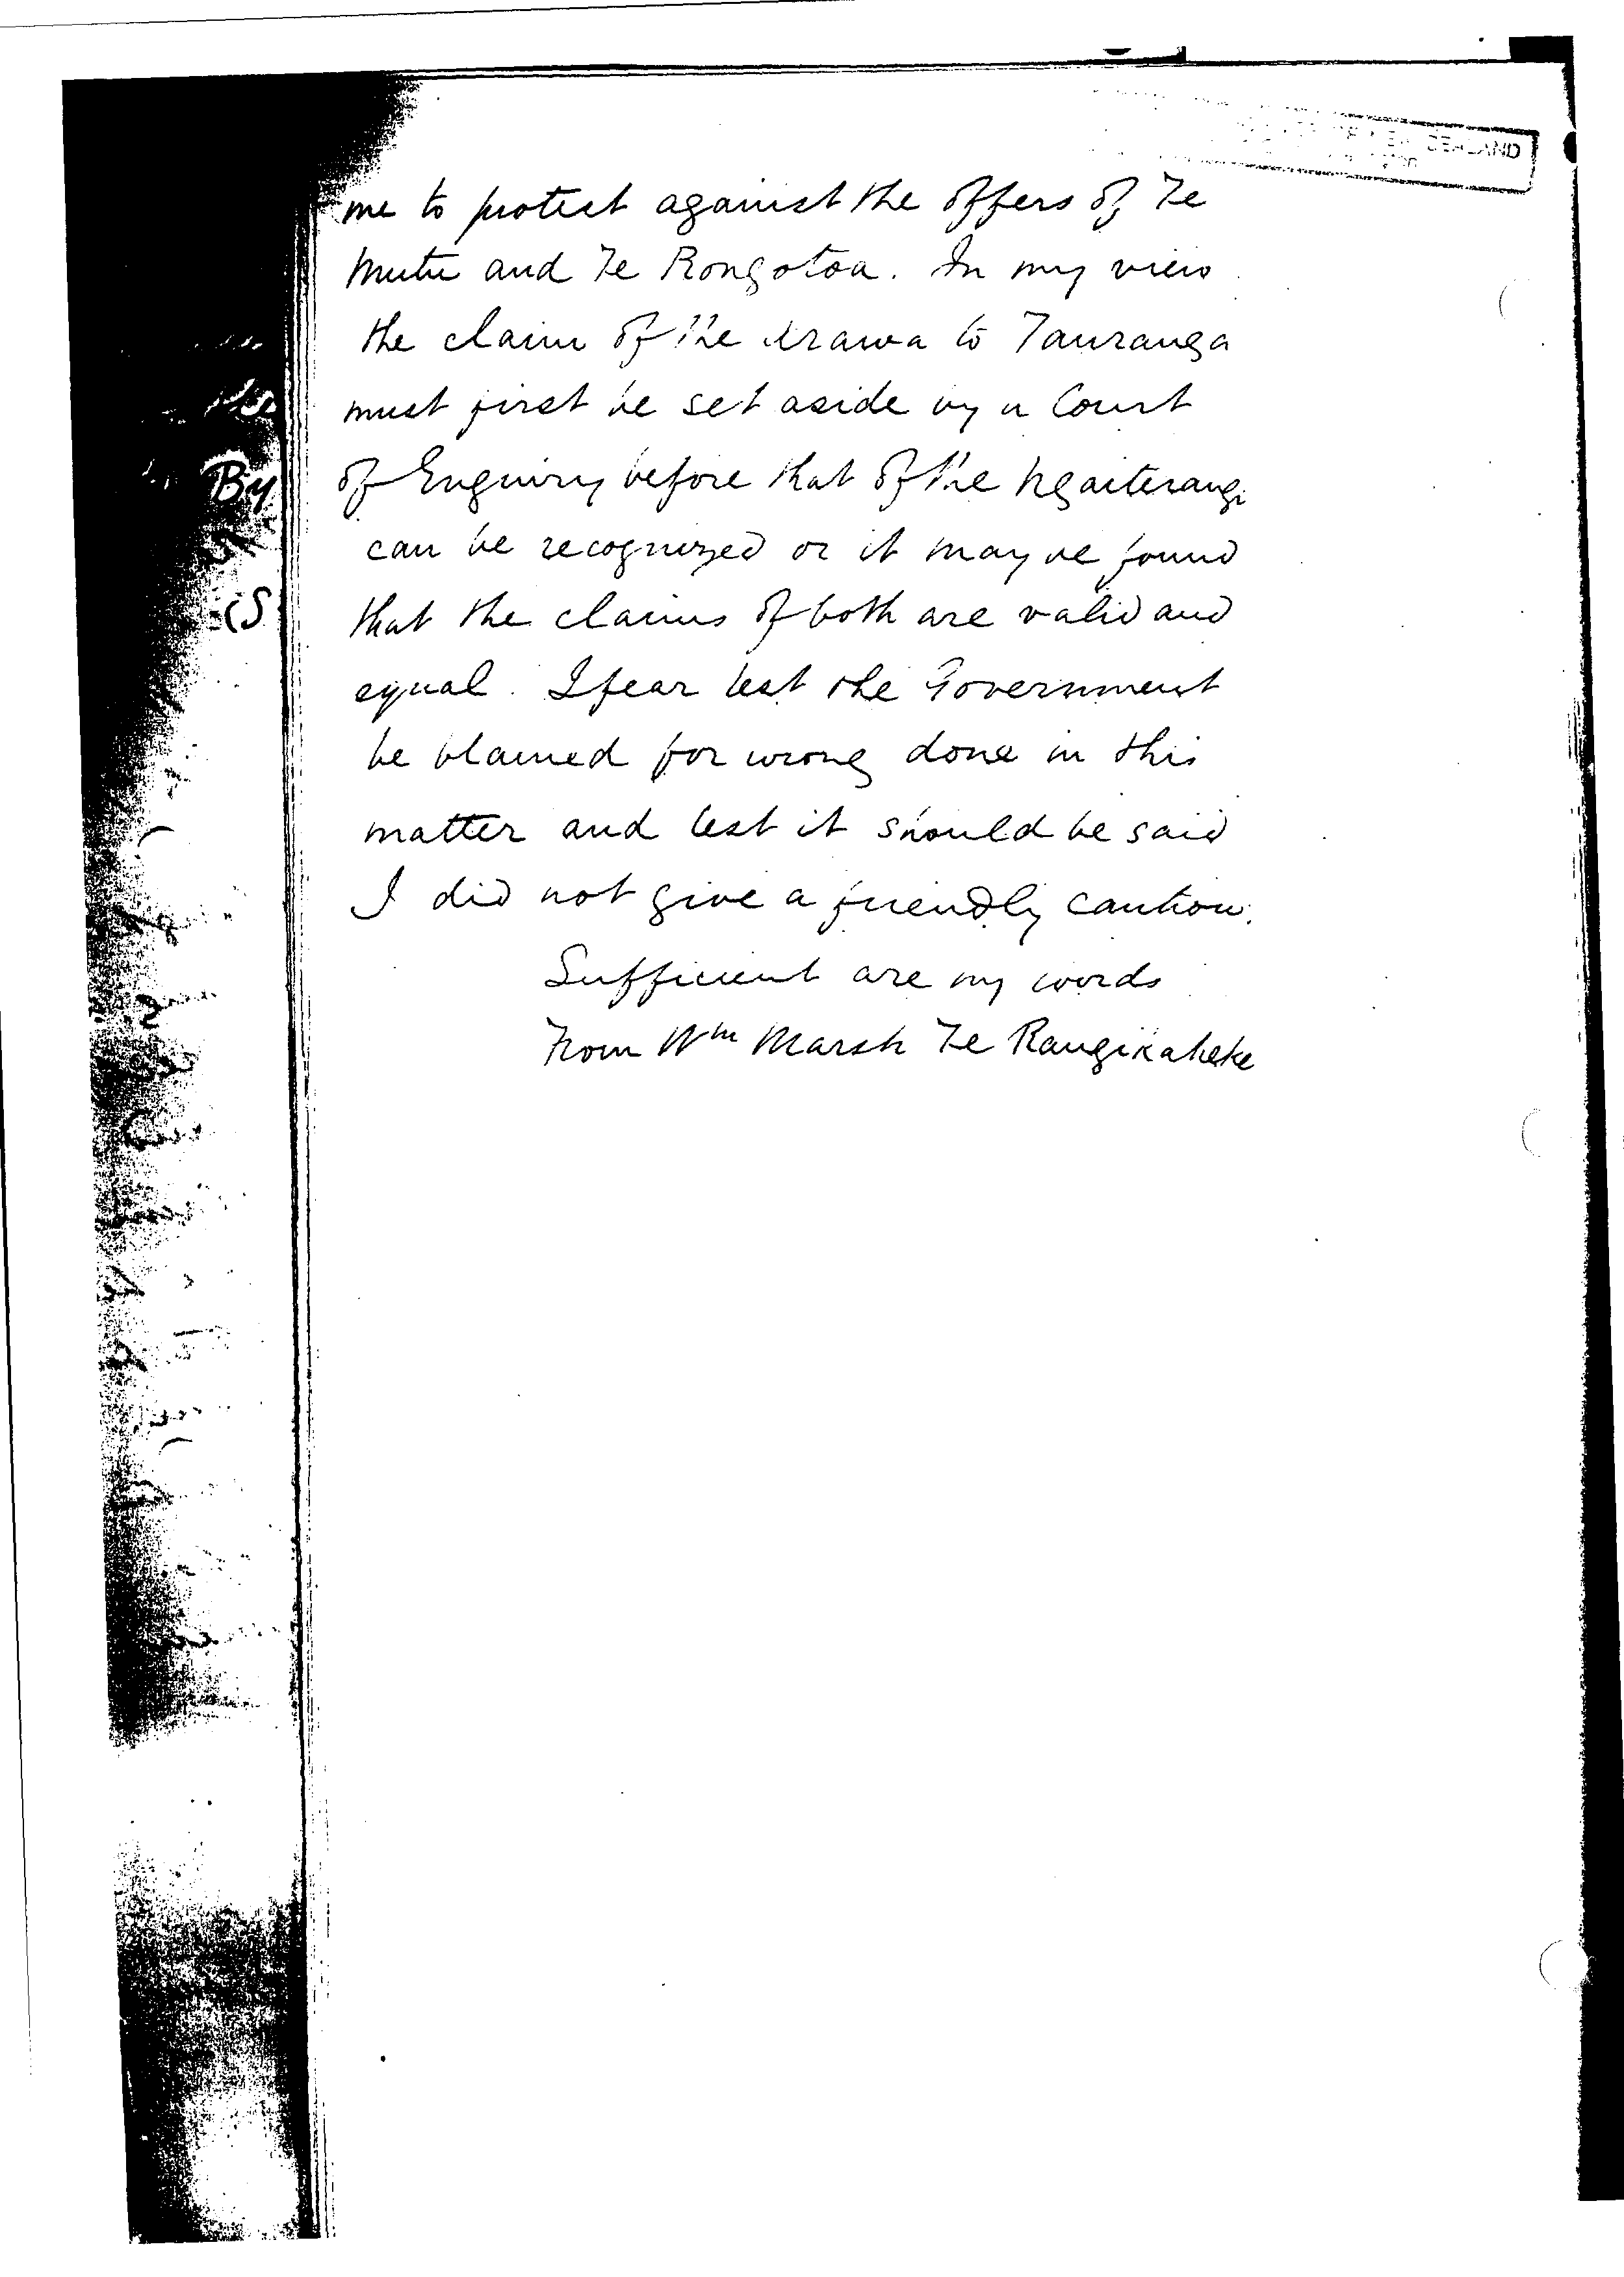 me to protect against the offers of Te
Mutu and Te Rongotoa. In my view
the claim of the Arawa to Tauranga
must first be set aside by a Court
of Enquiry before that of the Ngaiterangi
can be recognized or it may be found
that the claims of both are valid and
equal. I fear lest the Government
be blamed for wrong done in this
matter and lest it should be said
I did not give a friendly caution.
Sufficient are my words
From Wm Marsh Te Rangikaheke
By